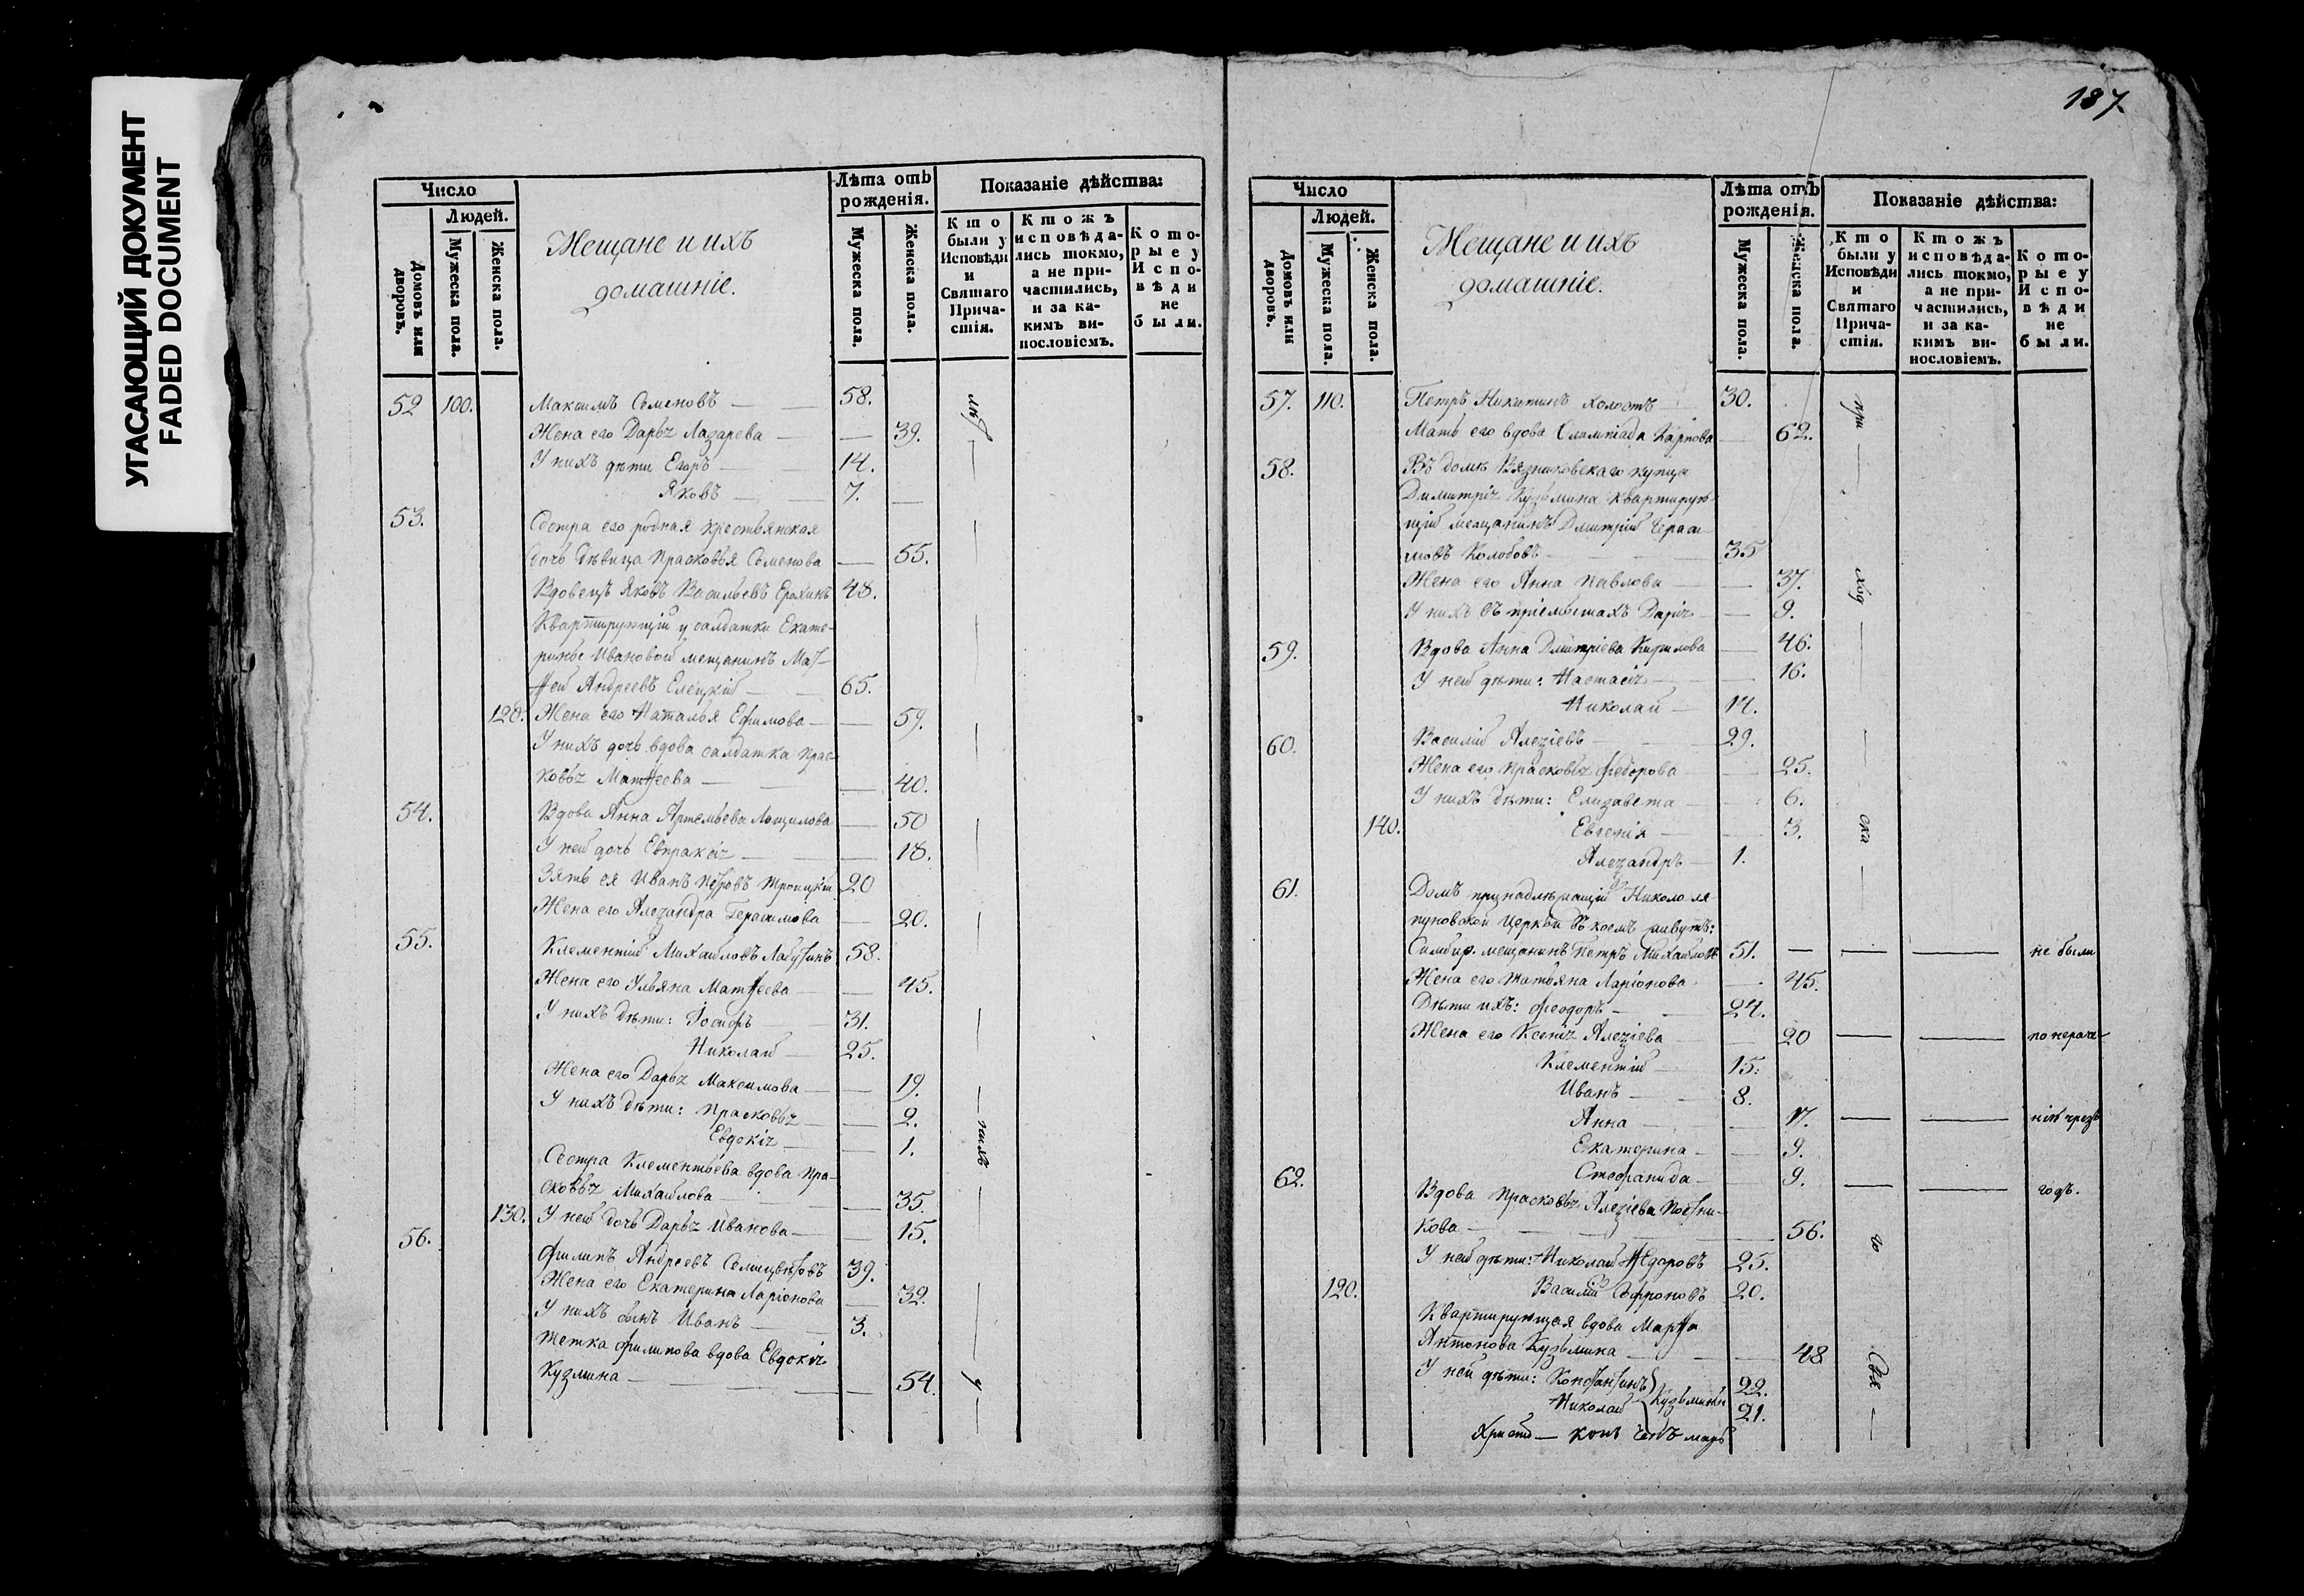 УГАСАЮЩИЙ ДОКУМЕНТ
FADED DOCUMENT
Число
Людей.
Домовъ или дворовъ.
Мужеска пола.
Женска пола.
Мещане и ихъ
домашніе.
Лѣта отъ рожденія.
Мужеска пола.
Женска пола.
Показаніе дѣйства:
Кто были у Исповѣди и Святаго Прича-стія.
Ктожъ исповѣда-лись токмо, а не при-частились, и за ка-кимъ ви-нословіемъ.
Кото-рые у Испо-вѣди не были.
52 100. Максимъ Семеновъ — 58.
Жена его Дарья Лазарева — — 39.
У нихъ дѣти Егоръ — 14.
Яковъ — 7. —
53. Сестра его родная крестьянская
дочь дѣвица Прасковья Семенова — 55.
Вдовецъ Яковъ Васильевъ Ерохинъ 48.
Квартирующій у салдатки Екате-
рины Ивановой мещанинъ Мат-
ѳей Андреевъ Елецкій — 65.
120. Жена его Наталья Ефимова — — 59.
У нихъ дочь вдова салдатка Прас-
ковья Матѳеева — — 40.
54. Вдова Анна Артемьева — 50
У ней дочь Евпраксія — — 18.
Зять ея Иванъ Петровъ Троицкій 20
Жена его Алеѯандра Герасимова — 20.
55. Клементій Михайловъ 58.
Жена его Ульяна Матѳеева — — 45.
У нихъ дѣти: Іосифъ — 31.
Николай — 25.
Жена его Дарья Максимова — — 19.
У нихъ дѣти: Прасковья — — 2.
Евдокія — — 1.
Сестра Клементьева вдова Пра-
сковья Михайлова — — 35.
130. У ней дочь Дарья Иванова — — 15.
56. Филипъ Андреевъ 39.
Жена его Екатерина Ларіонова — 32.
У нихъ сынъ Иванъ — 3.
Тетка Филипова вдова Евдокія
Кузмина — — 54.
187.
Число
Людей.
Домовъ или дворовъ.
Мужеска пола.
Женска пола.
Мещане и ихъ
домашніе.
Лѣта отъ рожденія.
Мужеска пола.
Женска пола.
Показаніе дѣйства:
Кто были у Исповѣди и Святаго Прича-стія.
Ктожъ исповѣда-лись токмо, а не при-частились, и за ка-кимъ ви-нословіемъ.
Кото-рые у Испо-вѣди не были.
57. 110. Петръ Никитинъ холостъ 30.
Мать его вдова Олампіада Карпова — 62.
58. Въ домѣ Вязниковскаго купца
Димитрія Кузьмина квартирую-
щій мещанинъ Дмитрій Гераси-
мовъ Колобовъ — 35
Жена его Анна Павлова — — 37.
У нихъ въ пріемышахъ Дарія — — 9.
59. Вдова Анна Дмитріева Кирилова — 46.
У ней дѣти: Настасія — — 16.
Николай — 14.
60. Василій Алеѯіевъ — 29.
Жена его Прасковья Федорова — 25.
У нихъ дѣти: Елизавета — — 6.
140. Евгенія — — 3.
Алеѯандръ — 1.
61. Домъ принадлежащій Николо ля
пуновской церкви въ коемъ живутъ:
Симбир. мещанинъ Петръ Михайловъ 51. — — — не были
Жена его Татьяна Ларіонова — 45.
Дѣти ихъ: Феодоръ — 24.
Жена его Ксенія Алеѯіева — 20 — — по нераче-
Клементій — 15.
Иванъ — 8.
Анна — — 17. — — нію чрезъ
Екатерина — — 9.
Стефанида — — 9. — — годъ.
62. Вдова Прасковья Алеѯіева Постни-
кова — — 56.
У ней дѣти: Николай Ѳедоровъ 25.
120. Василій Софроновъ 20.
Квартирующая вдова Марѳа
Антонова Кузьмина — — 48
У ней дѣти: Константинъ 22.
Николай Кузьмины 21.